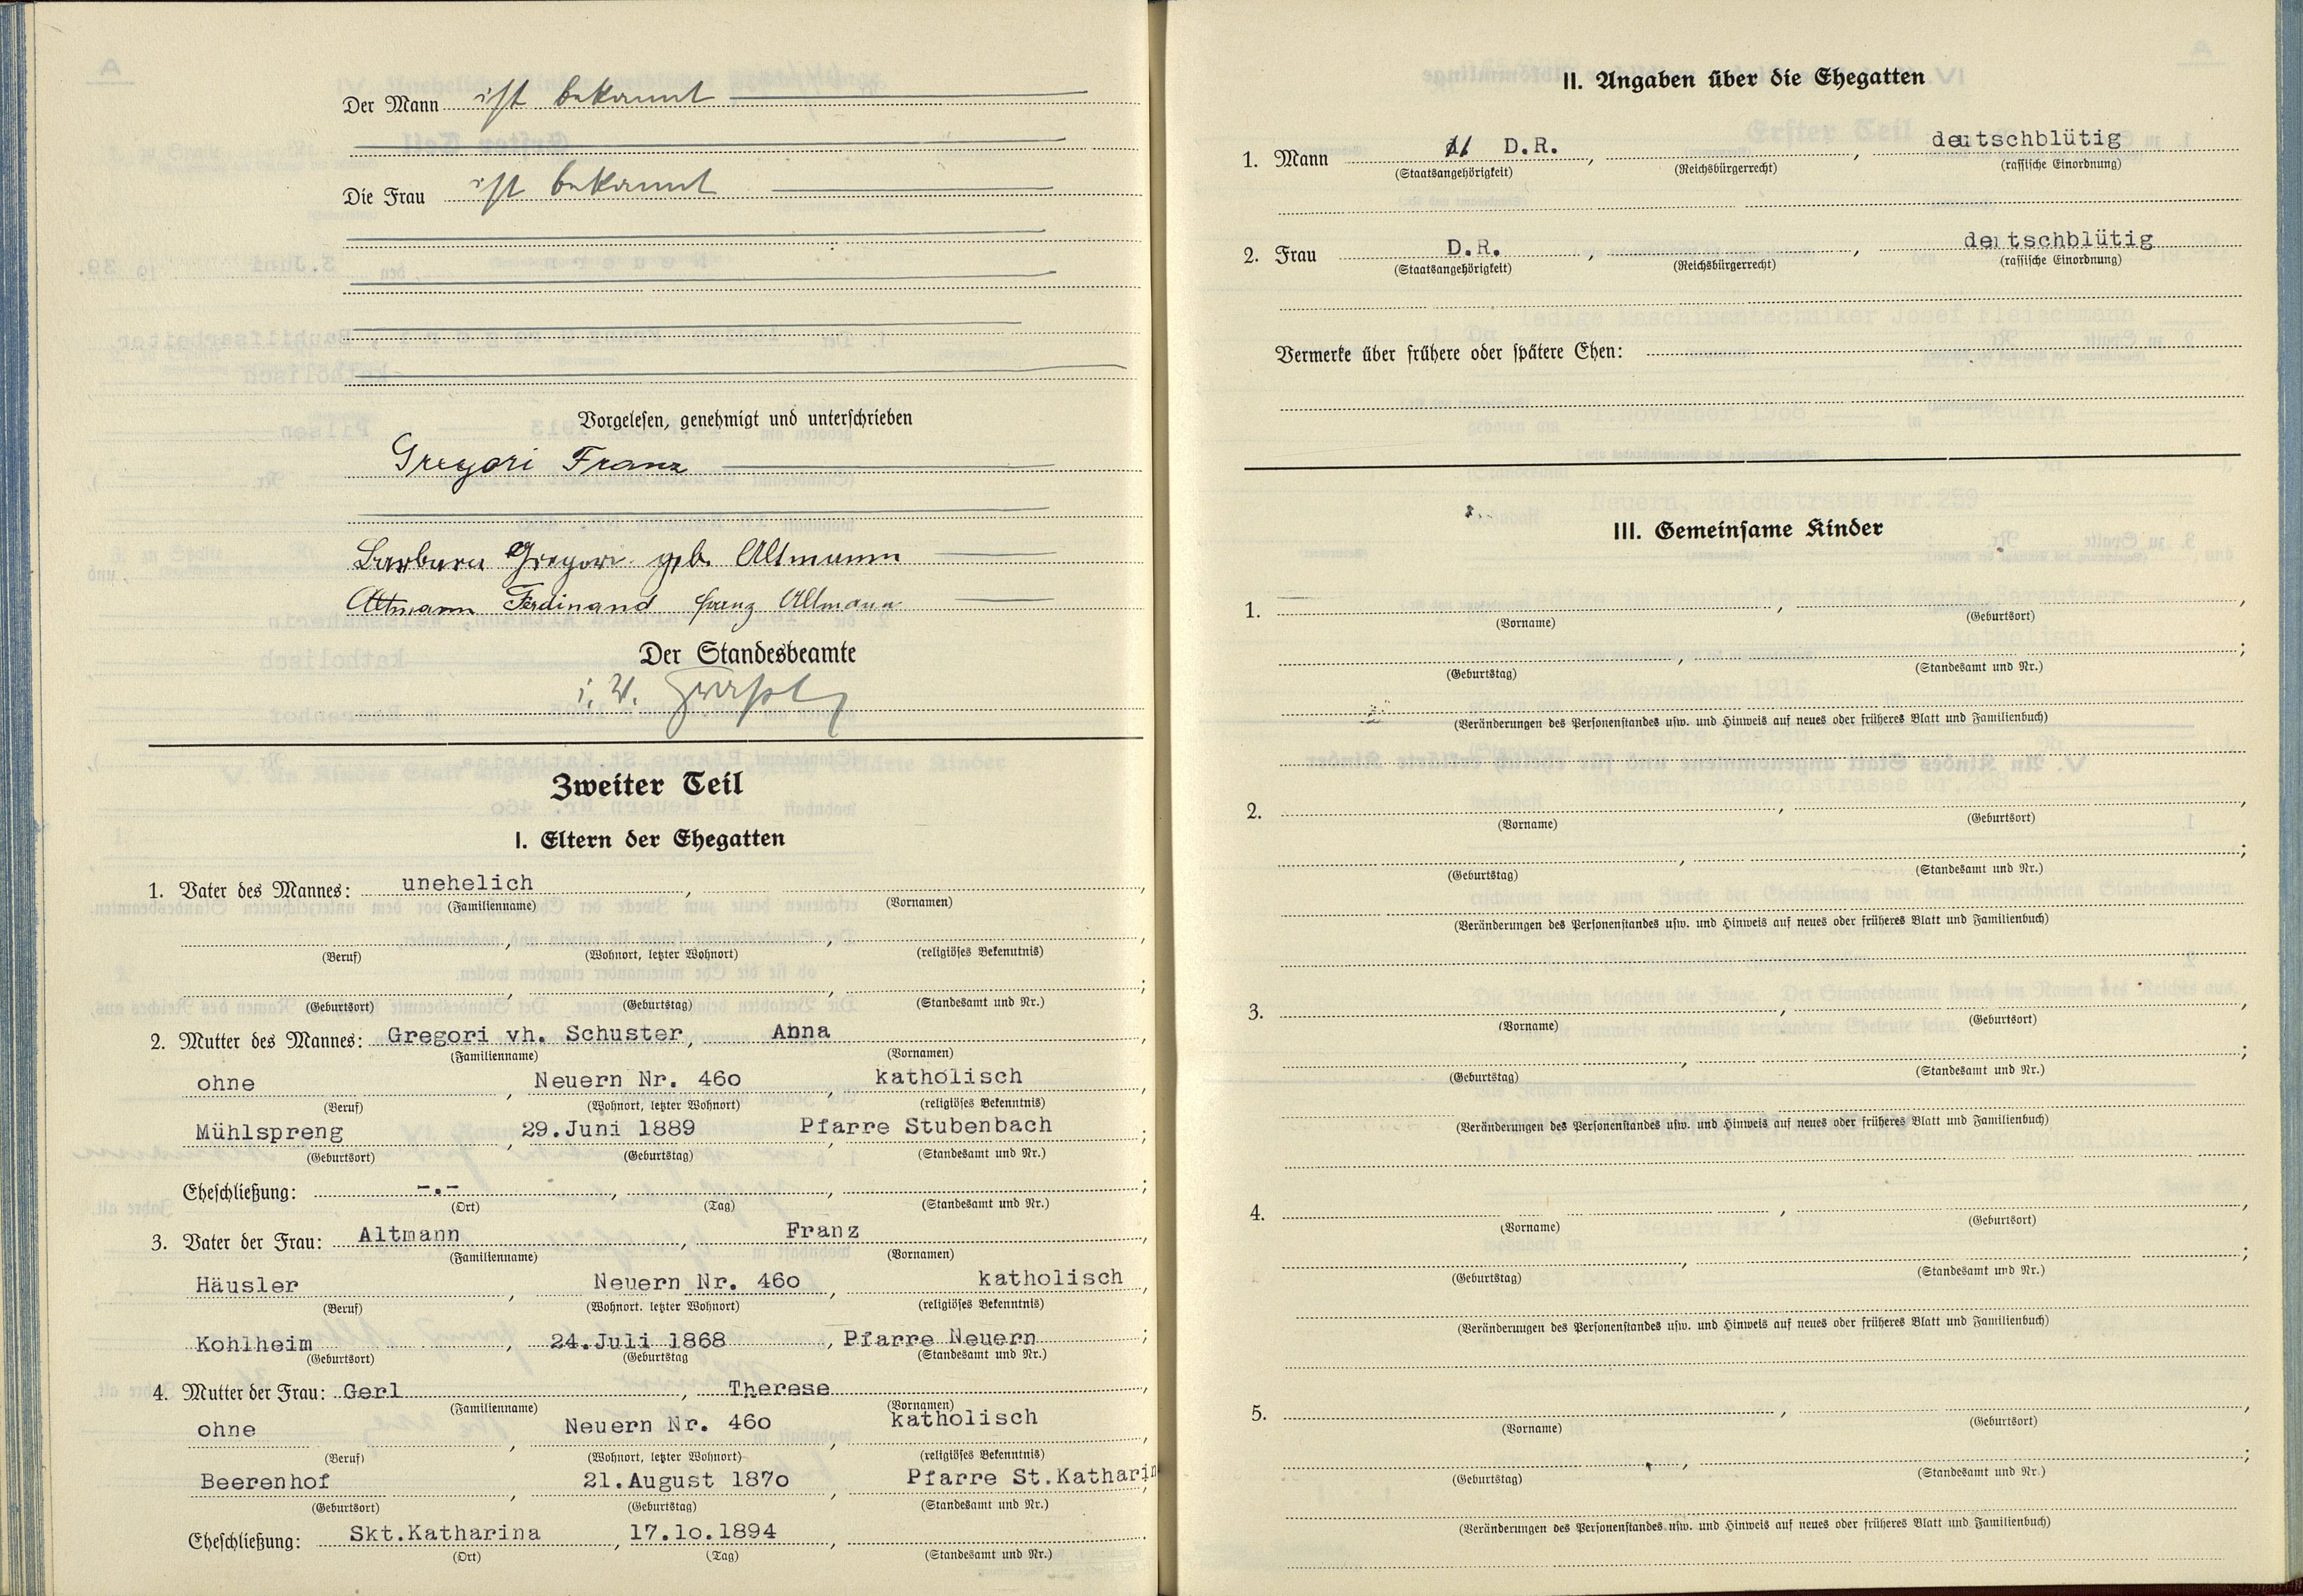 Der Mann ist bekannt
Die Frau ist bekannt
Vorgelesen, genehmigt und unterschrieben
Gregori Franz
Barbara Gregori geb. Altmann
Altmann Ferdinand Franz Altmann
Der Standesbeamte
Zweiter Teil
I. Eltern der Ehegatten
1. Vater des Mannes: unehelich ,
(Familienname) (Vornamen)
(Beruf) (Wohnort, letzter Wohnort) (religiöses Bekenntnis)
(Geburtsort) (Geburtstag) (Standesamt und Nr.)
2. Mutter des Mannes: Gregori vh. Schuster, Anna ,
(Familienname) (Vornamen)
ohne , Neuern Nr. 46o , katholisch ,
(Beruf) (Wohnort, letzter Wohnort) (religiöses Bekenntnis)
Mühlspreng , 29.Juni 1889 Pfarre Stubenbach ;
(Geburtsort) (Geburtstag) (Standesamt und Nr.)
Eheschließung: -.- , , ;
(Ort) (Tag) (Standesamt und Nr.)
3. Vater der Frau: Altmann , Franz ,
(Familienname) (Vornamen)
Häusler , Neuern Nr. 46o , katholisch ,
(Beruf) (Wohnort. letzter Wohnort) (religiöses Bekenntnis)
Kohlheim , 24.Juli 1868 , Pfarre Neuern ;
(Geburtsort) (Geburtstag (Standesamt und Nr.)
4. Mutter der Frau: Gerl , Therese ,
(Familienname) (Vornamen)
ohne , Neuern Nr. 46o , katholisch ,
(Beruf) (Wohnort, letzter Wohnort) (religiöses Bekenntnis)
Beerenhof , 21.August 187o , Pfarre St.Katharin ;
(Geburtsort) (Geburtstag) (Standesamt und Nr.)
Eheschließung: Skt.Katharina , 17.1o.1894 , .
(Ort) (Tag) (Standesamt und Nr.)
II. Angaben über die Ehegatten
1. Mann D.R. , , deutschblütig
(Staatsangehörigkeit) (Reichsbürgerrecht) (rassische Einordnung)
2. Frau D.R. , , deutschblütig
(Staatsangehörigkeit) (Reichsbürgerrecht) (rassische Einordnung)
Vermerke über frühere oder spätere Ehen:
III. Gemeinsame Kinder
1. , ,
(Vorname) (Geburtsort)
, ;
(Geburtstag) (Standesamt und Nr.)
(Veränderungen des Personenstandes usw. und Hinweis auf neues oder früheres Blatt und Familienbuch)
2. , ,
(Vorname) (Geburtsort)
, ;
(Geburtstag) (Standesamt und Nr.)
(Veränderungen des Personenstandes usw. und Hinweis auf neues oder früheres Blatt und Familienbuch)
3. , ,
(Vorname) (Geburtsort)
, ;
(Geburtstag) (Standesamt und Nr.)
(Veränderungen des Personenstandes usw. und Hinweis auf neues oder früheres Blatt und Familienbuch)
4. , ,
(Vorname) (Geburtsort)
, ;
(Geburtstag) (Standesamt und Nr.)
(Veränderungen des Personenstandes usw. und Hinweis auf neues oder früheres Blatt und Familienbuch)
5. , ,
(Vorname) (Geburtsort)
, ;
(Geburtstag) (Standesamt und Nr.)
(Veränderungen des Personenstandes usw. und Hinweis auf neues oder früheres Blatt und Familienbuch)